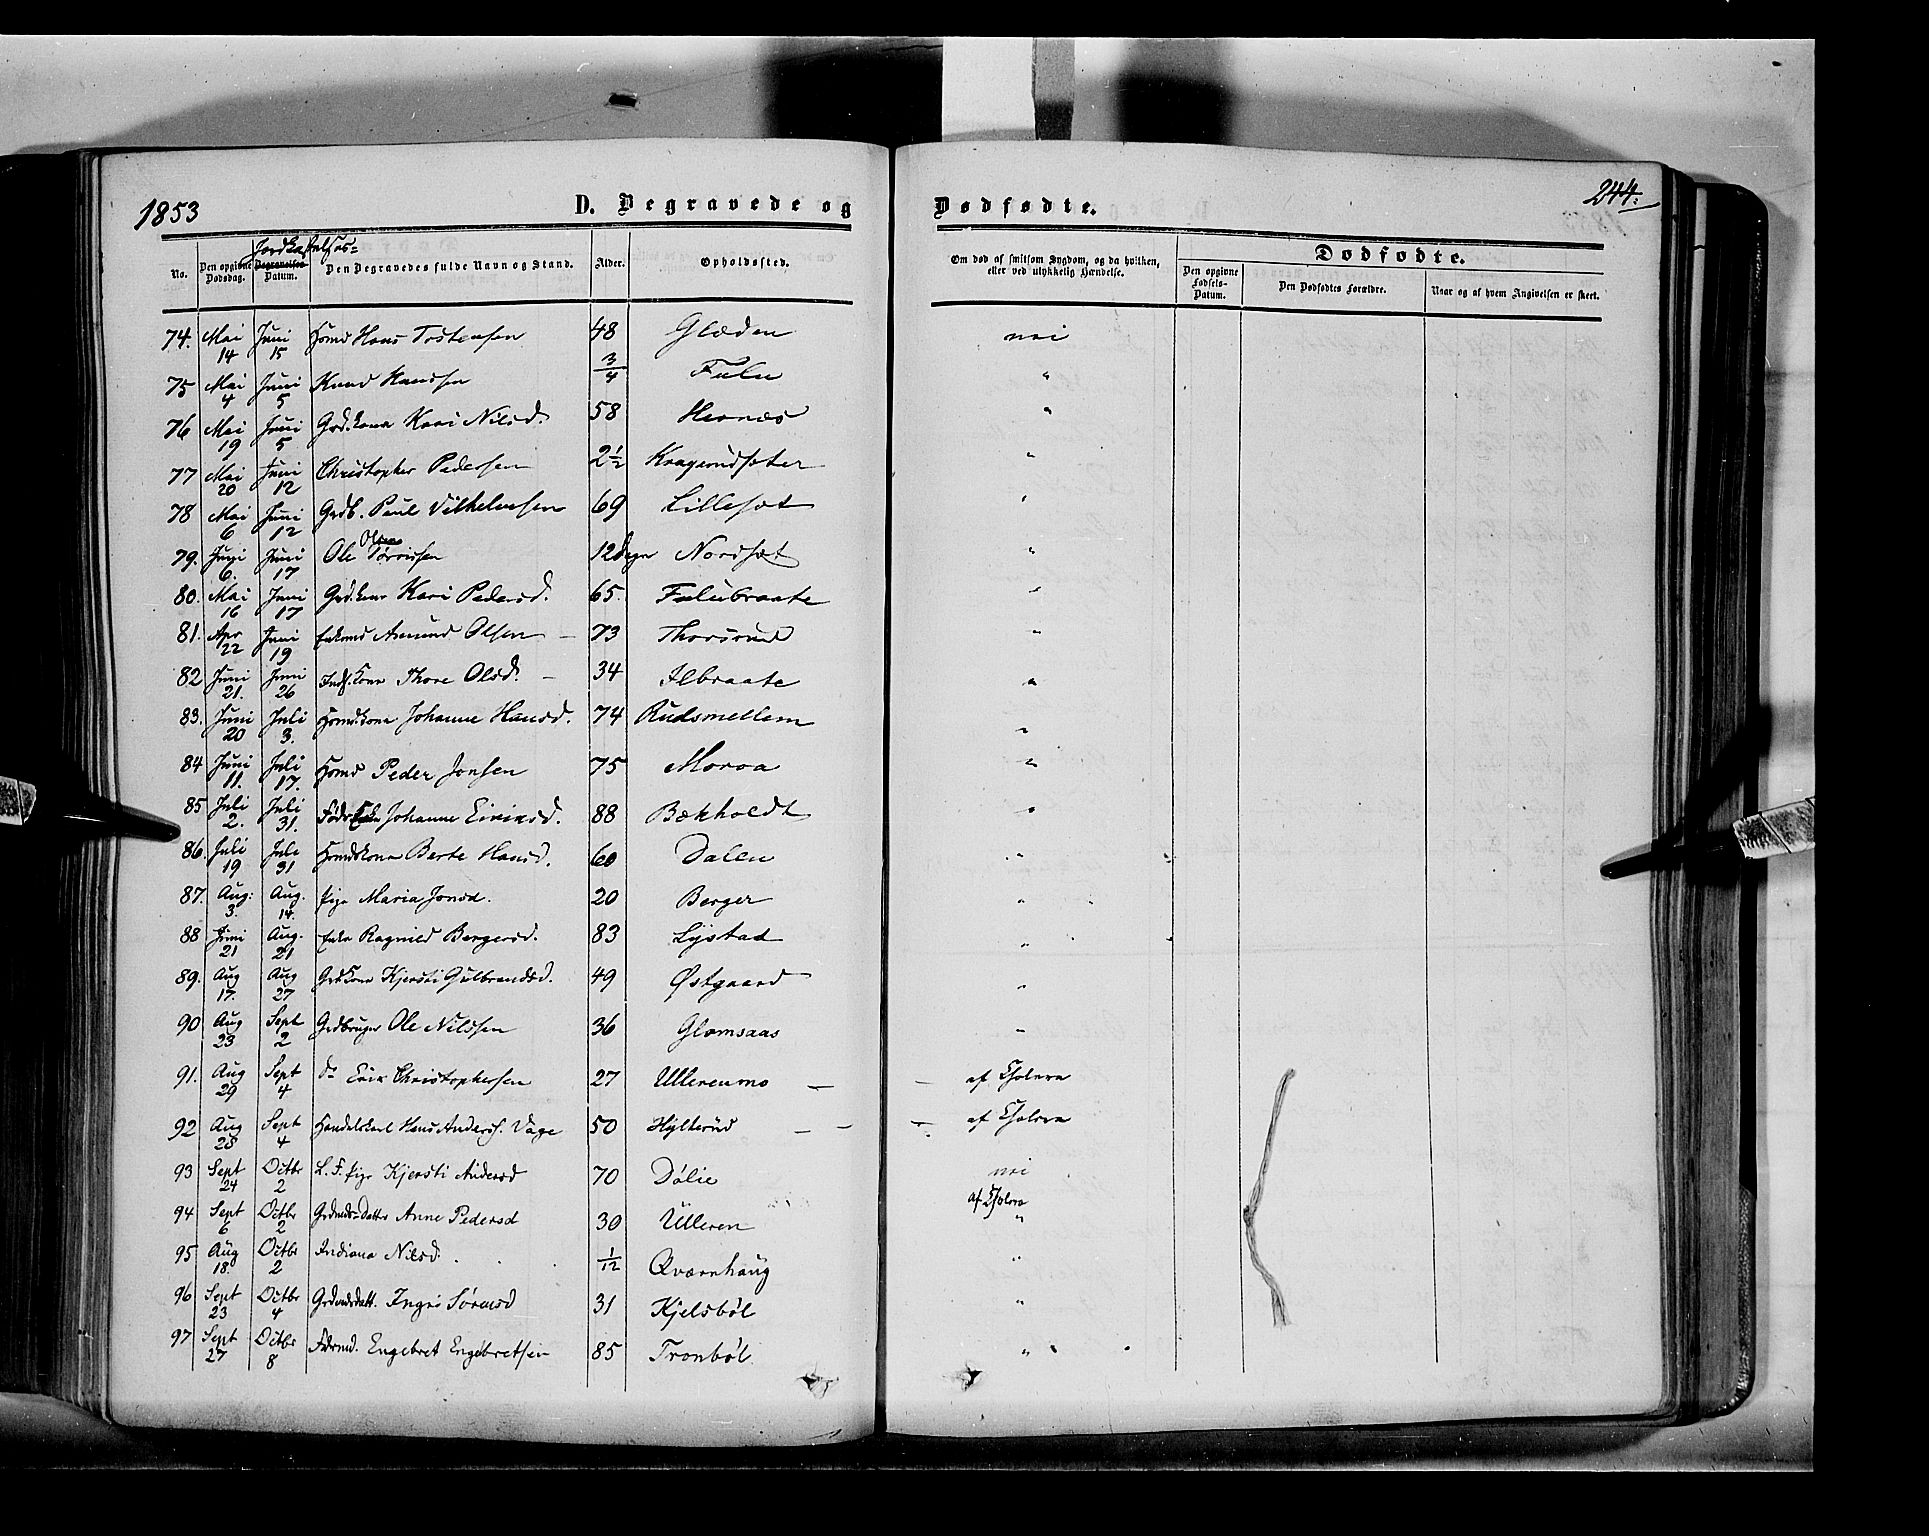 1853
D. Begravede og Dødfødte.
244.
No.
Den opgivne Dødsdag.
Jordkastelses-
Begravelses Datum.
Den Begravedes fulde Navn og Stand.
Alder.
Opholdssted.
Om død af smitsom Sygdom, og da hvilken, eller ved ulykkelig Hændelse.
Dødfødte.
Den opgivne Fødsels-Datum.
Den Dødfødtes Forældre.
Naar og af hvem Angivelsen er skeet.
74. Mai 14 Juni 15 Hmd Hans Tostensen 48 Glæden nei
75 Mai 4 Juni 5 Knud Hansen 3/4 Fulu "
76 Mai 19 Juni 5 Grd.kone Kari Nilsd. 58 Hernæs "
77 Mai 20 Juni 12 Christopher Pedersen 2 1/2 Kragerudsæter "
78 Mai 6 Juni 12 Grdb. Paul Vilhelmsen 69 Lillesæt "
79. Juni 6. Juni 17 Ole Olsen Tørrissen 12 Dage Nordsæt "
80. Mai 16 Juni 17 Grd.kone Kari Pedersd. 65. Fulubraate "
81. Apr 22 Juni 19 Enkemd Amund Olsen 73 Thorsrud "
82 Juni 21. Juni 26 Inds.kone Thore Olsd. 34 Ilbraate "
83. Juni 20 Juli 3. Hmdkone Johanne Hansd. 74 Rudsmellem "
84 Juni 11. Juli 17. Hmd Peder Jonsen 75 Moroa "
85 Juli 2. Juli 31. Føder Enke Johanne Eiriksd. 88 Bækholdt "
86. Juli 19 Juli 31 Hmdkone Berte Hansd. 60 Dalen "
87. Aug: 3. Aug. 14. Pige Maria Jonsd. 20 Berger "
88 Juni 21 Aug. 21 Enke Ragnild Bergersd. 83 Lystad "
89. Aug 17. Aug 27 Grdkone Kjersti Gulbrandsd. 49 Østgaard "
90 Aug 23 Sept 2 Grdbruger Ole Nilssen 36 Glomsaas "
91. Aug 29 Sept 4 do Erik Christophersen 27 Ullerenmo — — af Cholera
92 Aug 28 Sept 4 Handelskarl Hans Anders. Vage 50 Hylterud — — — af Cholera
93 Sept 24 Octbr 2 L. F. Pige Kjersti Andersd 70 Dølie nei
94 Sept 6 Octbr 2 Grdmds-Datter Anne Pedersd 30 Ulleren af Cholera "
95 Aug 18. Octbr 2 Indiana Nilsd. 1/12 Qværnhaug "
96 Sept 23 Octbr 4 Grdmdsdatt. Ingri Sørensd 31 Kjelsbøl "
97 Sept 27 Octbr 8 Fdrmd. Engebret Engebretsen 85 Tronbøl "